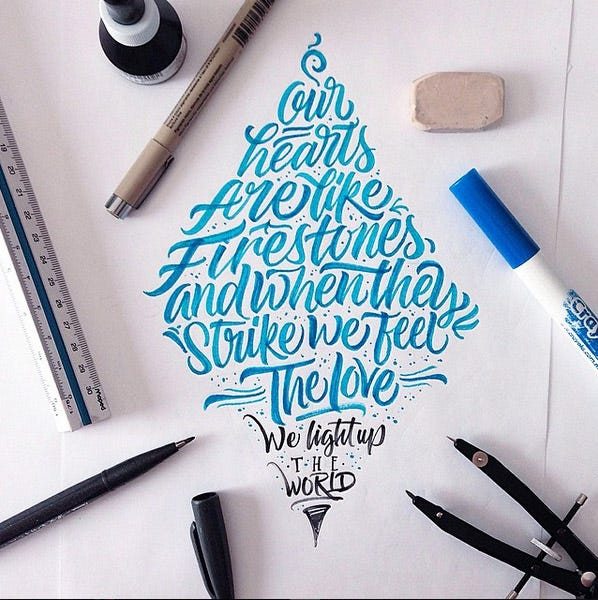 Our
hearts
Are like
Firestones
and when they
Strike we feel
The Love
We light up
THE
WORLD
19
20
21
22
23
24
25
26
27
28
29
30
Maped
Cray